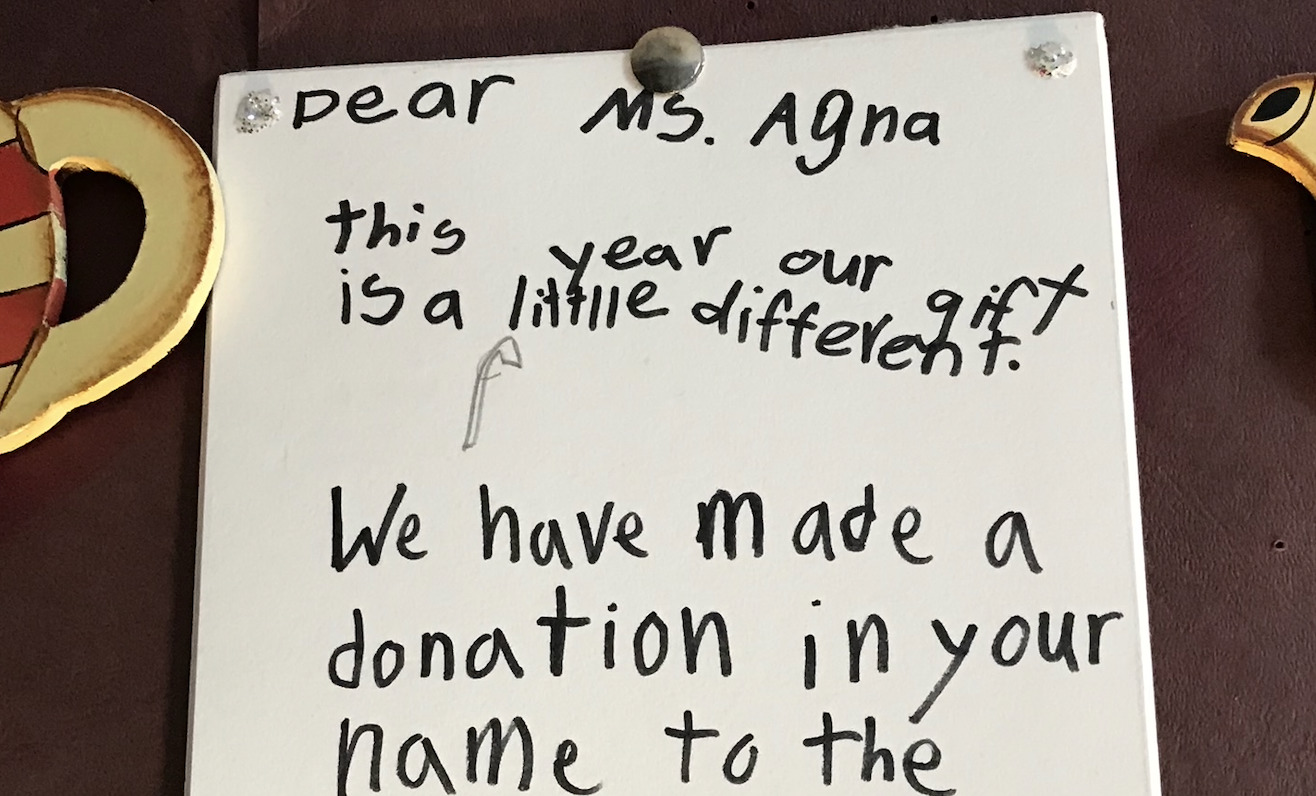 Dear Ms. Agna
this year our gift
is a little different.
We have made a
donation in your
name to the